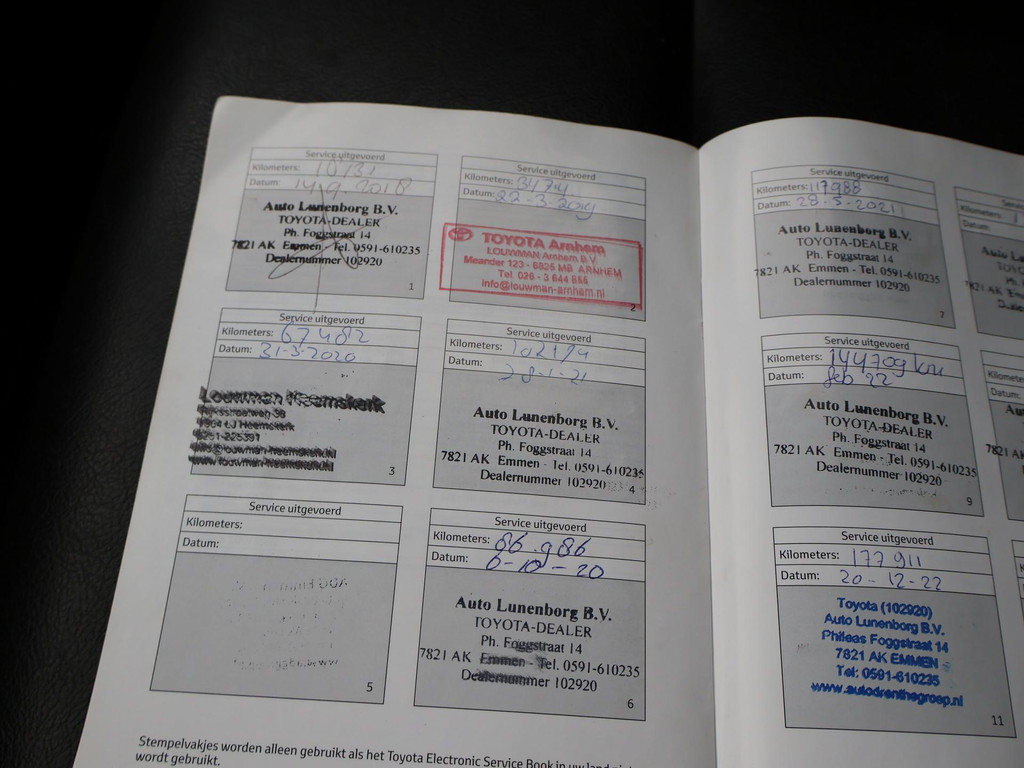 Service uitgevoerd
Kilometers: 10737
Datum: 14-9-2018
Auto Lunenborg B.V.
TOYOTA-DEALER
Ph. Foggstraat 14
7821 AK Emmen - Tel. 0591-610235
Dealernummer 102920
1
Service uitgevoerd
Kilometers:
Datum: 22-3-2019
TOYOTA Arnhem
LOUWMAN Arnhem B.V.
Meander 123 - 6825 MB ARNHEM
Tel. 026 - 3 644 866
info@louwman-arnhem.nl
2
Service uitgevoerd
Kilometers: 67482
Datum: 31-3-2020
Louwman Heemskerk
Rijksstraatweg
Heemskerk
0251-225391
www.louwman-heemskerk.nl
3
Service uitgevoerd
Kilometers:
Datum: 28-1-21
Auto Lunenborg B.V.
TOYOTA-DEALER
Ph. Foggstraat 14
7821 AK Emmen - Tel. 0591-610235
Dealernummer 102920
4
Service uitgevoerd
Kilometers:
Datum:
5
Service uitgevoerd
Kilometers: 86.986
Datum: 6-10-20
Auto Lunenborg B.V.
TOYOTA-DEALER
Ph. Foggstraat 14
7821 AK Emmen - Tel. 0591-610235
Dealernummer 102920
6
Stempelvakjes worden alleen gebruikt als het Toyota Electronic Service Book in uw land
wordt gebruikt.
Service uitgevoerd
Kilometers: 117988
Datum: 28-5-2021
Auto Lunenborg B.V.
TOYOTA-DEALER
Ph. Foggstraat 14
7821 AK Emmen - Tel. 0591-610235
Dealernummer 102920
7
Service uitgevoerd
Kilometers: 144709 km
Datum: feb 22
Auto Lunenborg B.V.
TOYOTA-DEALER
Ph. Foggstraat 14
7821 AK Emmen - Tel. 0591-610235
Dealernummer 102920
9
Service uitgevoerd
Kilometers: 177911
Datum: 20-12-22
Toyota (102920)
Auto Lunenborg B.V.
Phileas Foggstraat 14
7821 AK EMMEN
Tel: 0591-610235
www.autodrenthegroep.nl
11